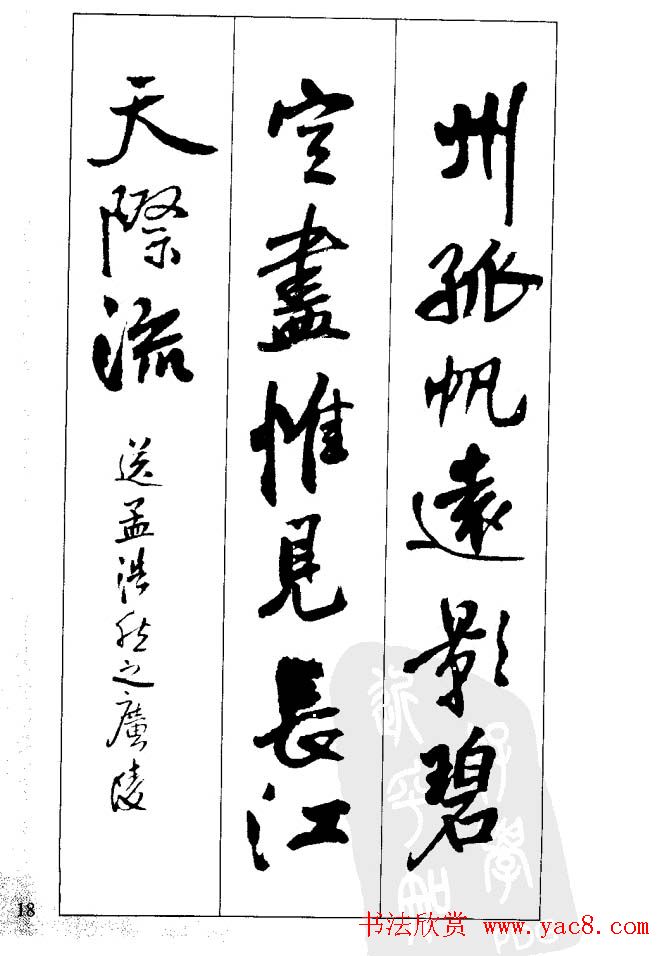 州孤帆遠影碧
空盡惟見長江
天際流
送孟浩然之廣陵
18
书法欣赏 www.yac8.com